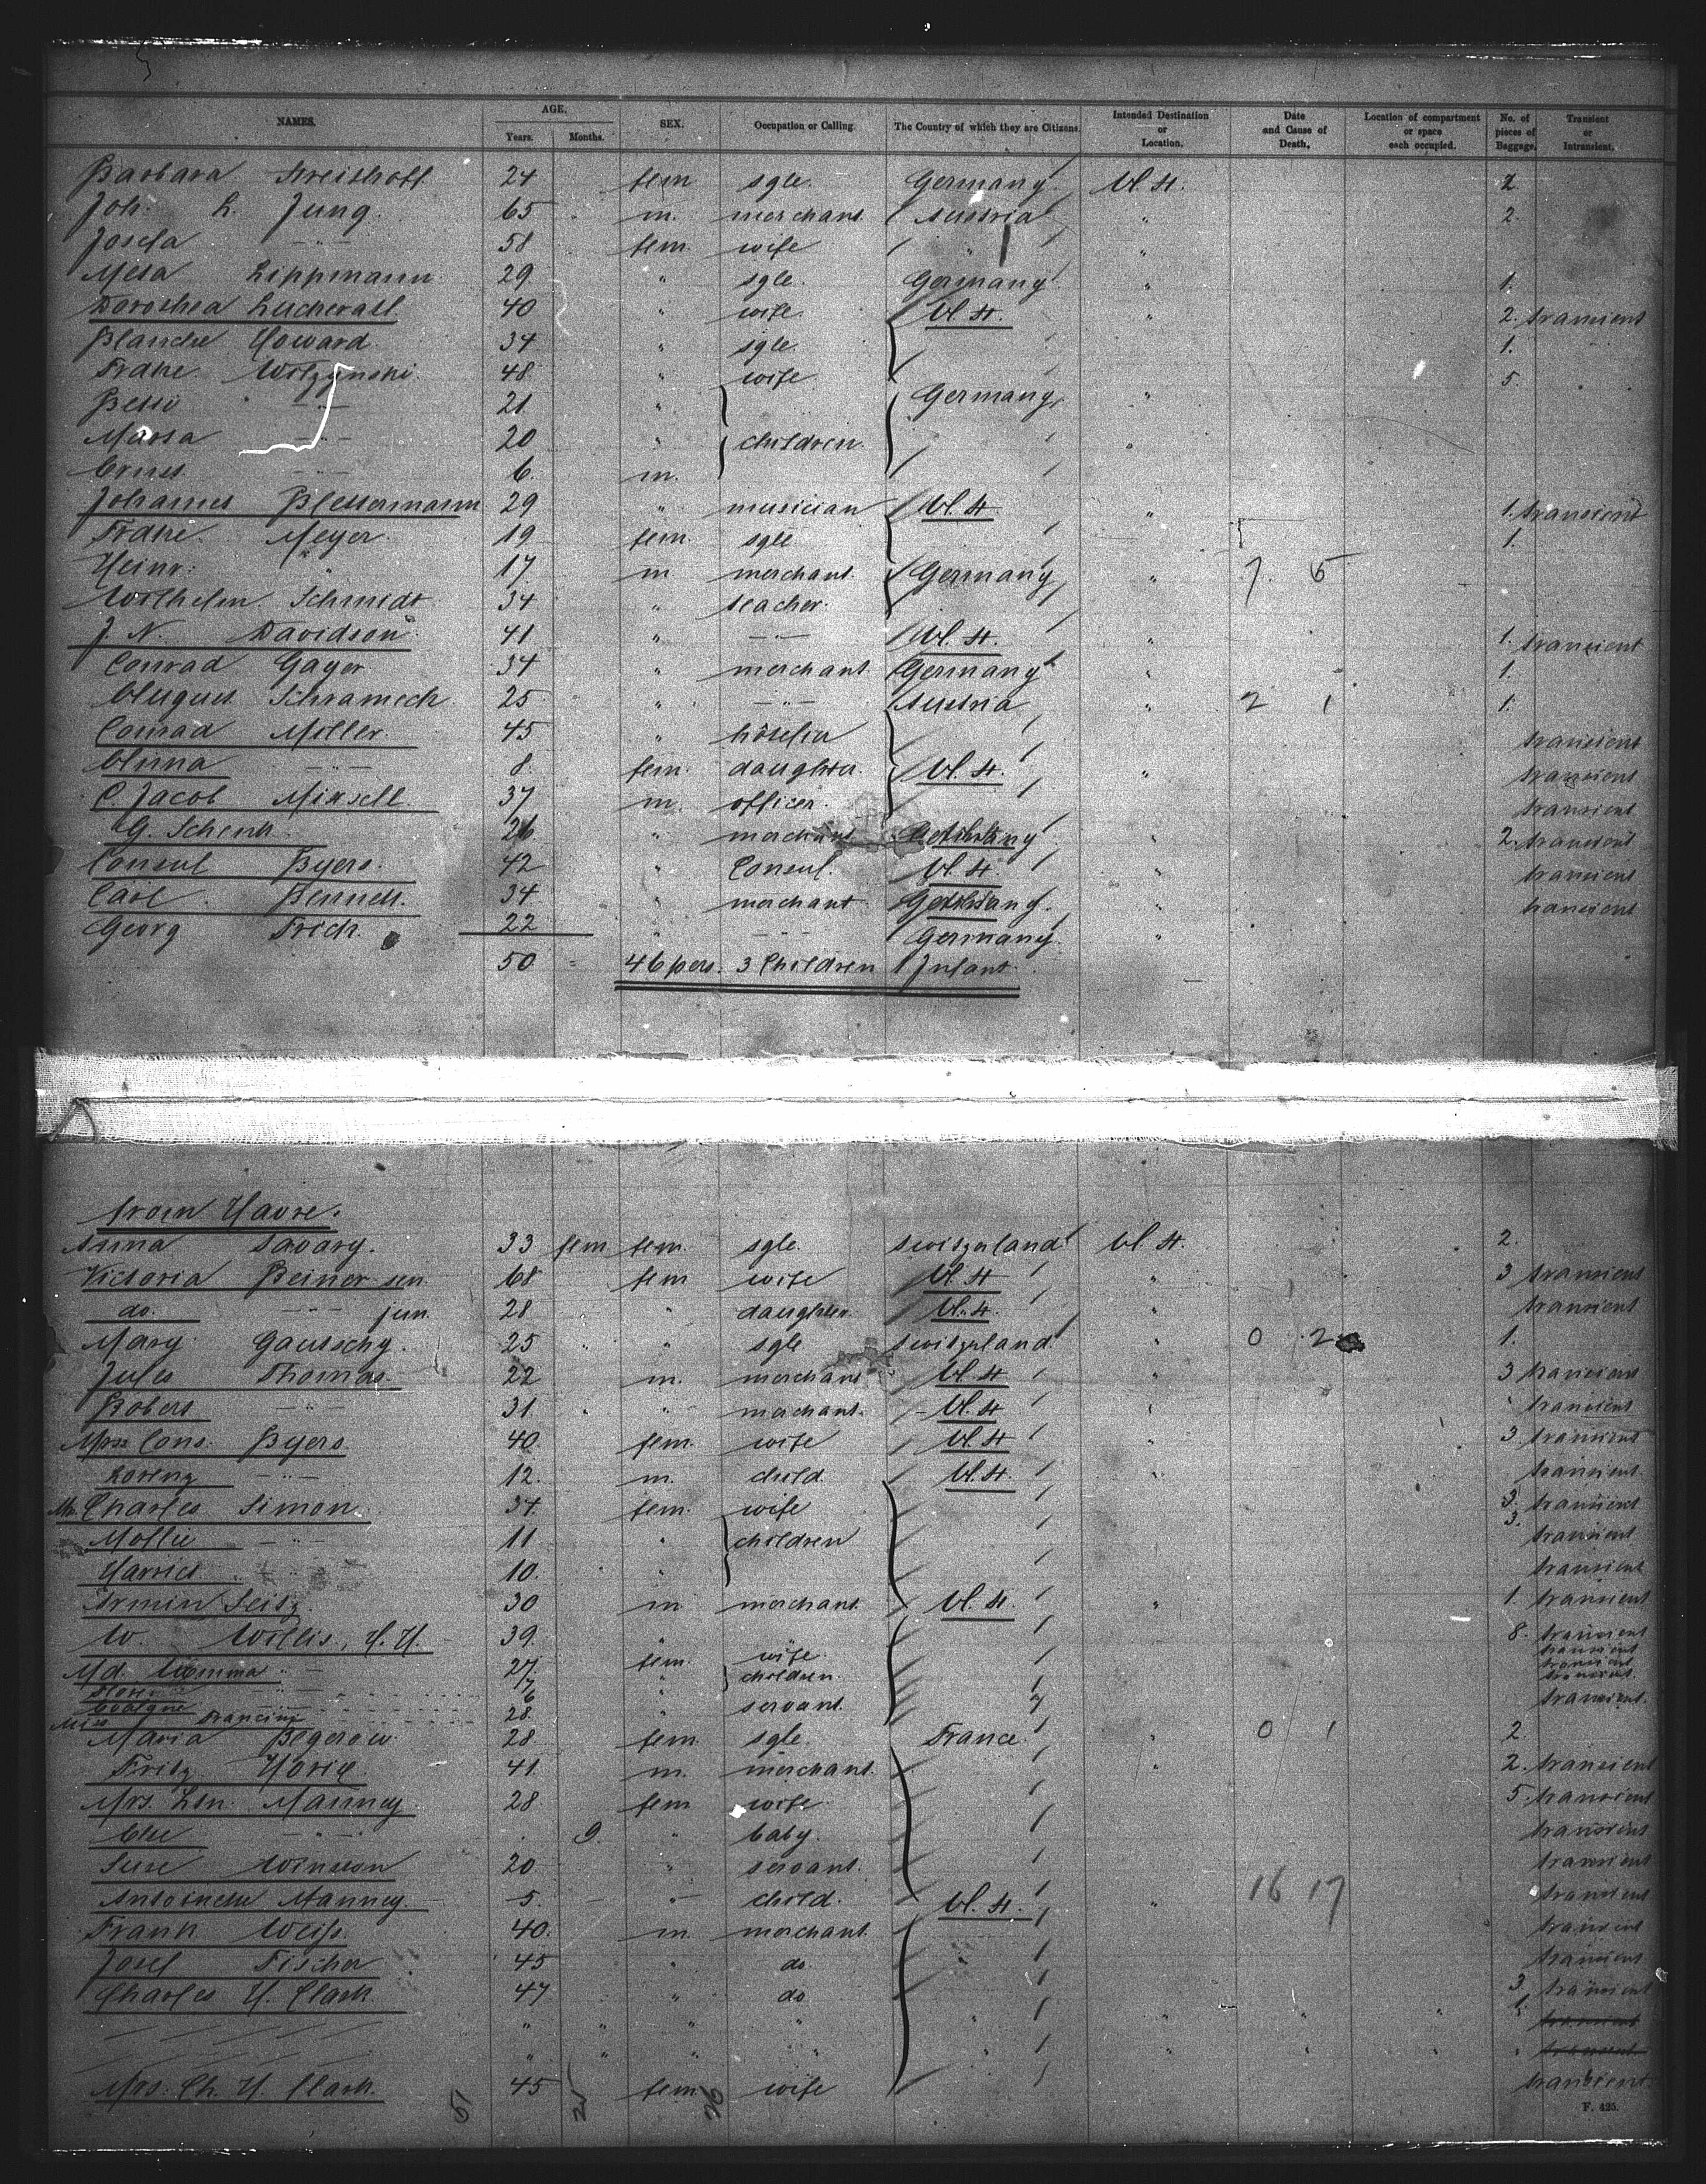 NAMES. AGE. Years. Months. SEX. Occupation or Calling. The Country of which they are Citizens. Intended Destination or Location. Date and Cause of Death. Location of compartment or space each occupied. No. of pieces of Baggage. Transient or Intransient.
Barbara 24 fem sgle. Germany U. St. 2
Joh. L. Jung. 65 m. merchant. Austria " 2.
Josefa —"— 58 fem. wife " "
Meta Lippmann 29 " sgle. Germany " 1.
Dorothea 40 " wife. U. St. " 2. transient
Blanche Howard 34 " sgle. 1.
48 " wife 5.
—"— 21 " Germany "
—"— 20 " children. "
—"— 6. m.
Johannes 29 " musician U. St. " 1. transient
Meyer 19 fem. sgle 1.
Heinr. " 17 m merchant. Germany " 7. 5
Wilhelm Schmidt 34 " teacher.
J. N. Davidson 41 " —"— U. St. " 1. transient
Conrad Gayer 34 " merchant. Germany " 1.
August Schramech 25 " —"— Austria " 2 1 1.
Conrad Miller. 45 " transient
Anna —"— 8. fem. daughter. U. St. " transient
C. Jacob 37 m. officer. transient
G. Schenk. 26 " merchant " 2. transient
Consul Byers. 42 " Consul. U. St. " transient
Carl Bennett. 34 " merchant " transient
Georg Frich. 22 " —"— Germany. "
50 = 46 pers. 3 Children 1 Infant.
from Havre.
Anna Savary. 33 fem fem. sgle. Switzerland U. St. 2.
Victoria Beiner sen. 68 fem wife U. St. " 3 transient
do. —"— jun. 28 " daughter U. St. " transient
Mary Gautschy. 25 " " sgle Switzerland " 0 2 1.
Jules Thomas. 22 m. merchant U. St. " 3 transient
Robert —"— 31. " " merchant. U. St. " " transient
Mrs. Cons. Byers 40. fem. wife U. St. " 3. transient
—"— 12. m. child. U. St. " transient
Charles Simon. 34. fem. wife 3. transient
3.
Mollie —"— 11 " children transient
Harriet —"— 10. " transient
Armin Seitz. 30 m merchant. U. St. " 1. transient
W. Willis, H. H. 39. " 8. transient
Md. Emma —"— 27. fem. wife. transient
7 " children. transient
6 transient
Miss Francine 28. " servant. transient.
Maria Begerow. 28 fem. sgle. France " 0 1 2.
Fritz 41. m. merchant. " 2. transient
Mrs. Manney 28. fem wife. 5. transient
—"— . 9. " baby. transient
Winston 20 " servant. transient
Antoinette Manney. 5. — " child. U. St. " 16 17 transient
Frank Weiss. 40. m. merchant. transient
Josef Fischer 45 " do. " transient
Charles H. Clark 47 " do 3. transient
" " " " " " " " " 1. transient
" " " " " " " " " transient
Mrs. Ch. H. Clark. 45 fem. wife transient
51 25 26
F. 425.